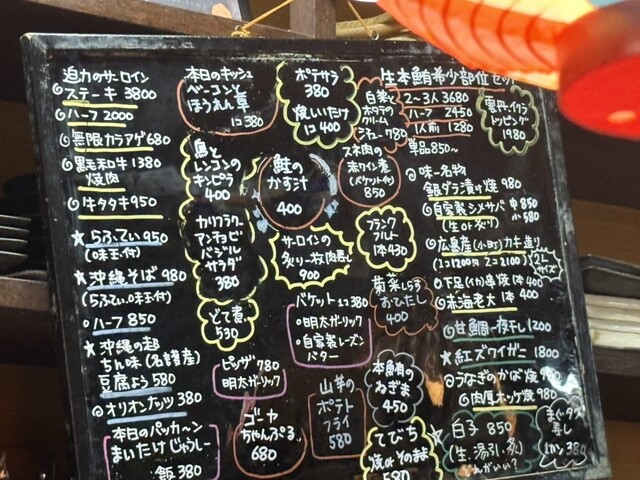 迫力のサーロイン
◎ステーキ 3800
◎ハーフ 2000
◎無限カラアゲ 680
◎黒毛和牛 1380
焼肉
◎牛タタキ 950
★らふてぃ 950
(味玉付)
★沖縄そば 980
(らふてぃ、味玉付)
◎ハーフ 850
★沖縄の超
ちん味(名護産)
豆腐よう 580
◎オリオンナッツ 380
本日のパッカ〜ン
まいたけじゅうしー
飯 380
本日のキッシュ
ベーコンと
ほうれん草
1コ 380
鳥と
レンコンの
キンピラ
400
カリフラワー
アンチョビ
バジル
サラダ
380
どて煮
530
ピッザ 780
明太ガーリック
ゴーヤ
ちゃんぷる
680
ポテサラ
380
焼しいたけ
1コ 400
鮭の
かす汁
400
サーロインの
炙り一枚肉寿し
900
バゲット 1コ 380
・明太ガーリック
・自家製レーズン
バター
山芋の
ポテト
フライ
580
白菜と
ポテトの
クリーム
シチュー 780
スネ肉の
赤ワイン煮
(バゲット付)
850
フランク
フルト
1本 430
菊菜しろろ
おひたし
400
本鮪の
ねぎま
450
てびち
焼 or そのまま
580
生本鮪希少部位セット
2〜3人 3680
ハーフ 2450
1人前 1280
単品 850〜
雲丹・イクラ
トッピング
1980
◎味一名物
銀ダラ漬け焼 980
◎自家製シメサバ 中 850
(生 or 炙り) 小 580
◎広島産(小町)カキ造り
(1コ 1200 2コ 2100)
2L
サイズ
◎下足(イカ)串焼 1本 400
◎赤海老大 1本 400
◎甘鯛一夜干し 1200
★紅ズワイガニ 1800
◎うなぎのかば焼 980
◎肉厚ホッケ焼 980
★白子 850
(生・湯引・炙)
どれがいい?
まぐろ
寿し
1カン 380